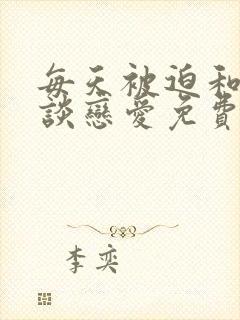 每天被迫和
談戀愛免費
李奕